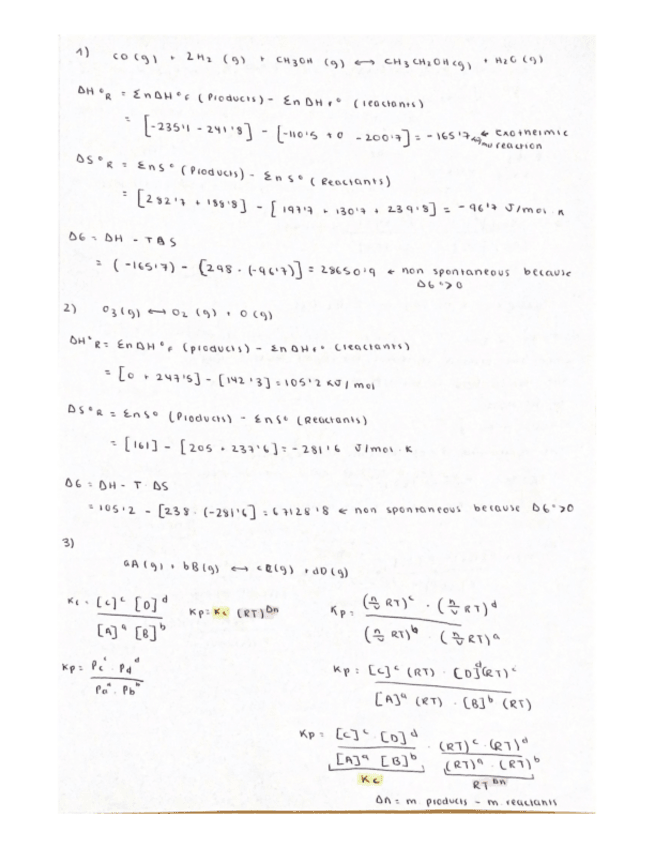 1) CO (g) + 2H2 (g) + CH3OH (g) ↔ CH3CH2OH(g) + H2O (g)
ΔH°R = ΣnΔH°F (Products) - ΣnΔHF° (reactants)
= [-235'1 - 241'8] - [-110'5 + 0 - 200'7] = -165'7 ← exothermic reaction
ΔS°R = ΣnS° (Products) - ΣnS° (Reactants)
= [282'7 + 188'8] - [197'7 + 130'7 + 239'8] = -96'7 J/mol K
ΔG = ΔH - TΔS
= (-165'7) - [298 · (-96'7)] = 28650'9 ← non spontaneous because
ΔG°>0
2) O3(g) ↔ O2 (g) + O (g)
ΔH°R = ΣnΔH°F (products) - ΣnΔHF° (reactants)
= [0 + 247'5] - [142'3] = 105'2 KJ/mol
ΔS°R = ΣnS° (Products) - ΣnS° (Reactants)
= [161] - [205 + 237'6] = -281'6 J/mol·K
ΔG = ΔH - T·ΔS
= 105'2 - [238·(-281'6] = 67128'8 ← non spontaneous because ΔG°>0
3)
aA (g) + bB (g) ↔ cC(g) + dD(g)
Kc = [C]^c [D]^d / [A]^a [B]^b
Kp = Kc (RT)^Δn
Kp = (n/v RT)^c · (n/v RT)^d / (n/v RT)^b · (n/v RT)^a
Kp = Pc^c · Pd^d / Pa^a · Pb^b
Kp = [C]^c (RT) · [D]^d (RT)^c / [A]^a (RT) · [B]^b (RT)
Kp = [C]^c · [D]^d / [A]^a [B]^b · (RT)^c · (RT)^d / (RT)^a · (RT)^b
Kc RT^Δn
Δn = m products - m reactants